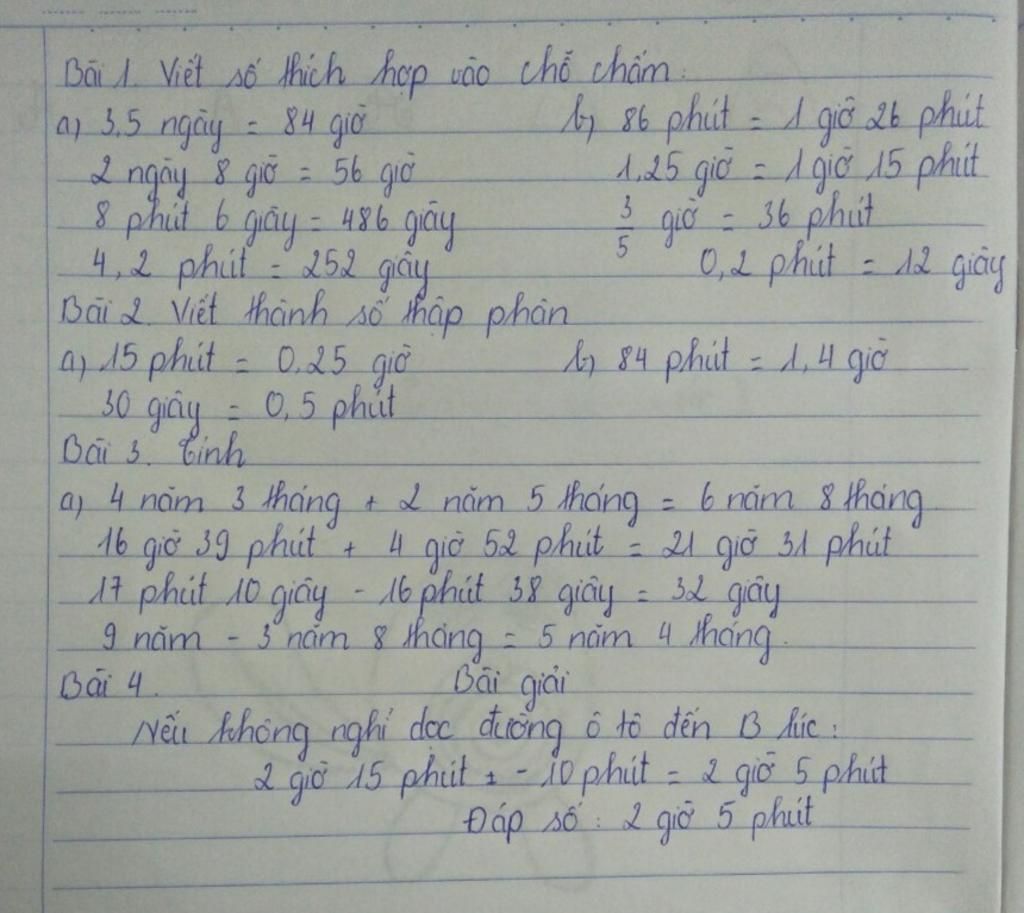 Bài 1. Viết số thích hợp vào chỗ chấm:
a) 3,5 ngày = 84 giờ b) 86 phút = 1 giờ 26 phút
2 ngày 8 giờ = 56 giờ 1,25 giờ = 1 giờ 15 phút
8 phút 6 giây = 486 giây 3/5 giờ = 36 phút
4,2 phút = 252 giây 0,2 phút = 12 giây
Bài 2. Viết thành số thập phân
a) 15 phút = 0,25 giờ b) 84 phút = 1,4 giờ
30 giây = 0,5 phút
Bài 3. Tính
a) 4 năm 3 tháng + 2 năm 5 tháng = 6 năm 8 tháng
16 giờ 39 phút + 4 giờ 52 phút = 21 giờ 31 phút
17 phút 10 giây - 16 phút 38 giây = 32 giây
9 năm - 3 năm 8 tháng = 5 năm 4 tháng.
Bài 4. Bài giải
Nếu không nghỉ dọc đường ô tô đến B lúc:
2 giờ 15 phút - 10 phút = 2 giờ 5 phút
Đáp số: 2 giờ 5 phút